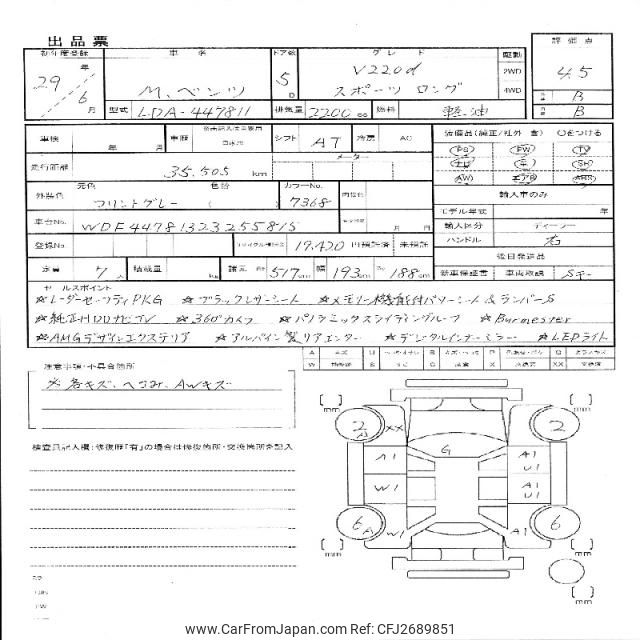 出品票
初年度登録 車名 ドア数 グレード 駆動 評価点
29年 6月 M、ベンツ 5D V220d スポーツ ロング 2WD 4WD 4.5 B B
型式 LDA-447811 排気量 2200cc 燃料 軽油
車検 年 月 車歴 シフト AT 冷房 AC 装備品(純正/社外 含)○をつける
走行距離 35,505km メーター
PS PW TV
SH
AW エアB
外装色 元色 色替 カラーNo. 内装色
フリントグレー ( ) 7368
輸入車のみ
モデル年式 年
車台No. WDF44781323255815 月 日 輸入区分 ディーラー
登録No. リサイクル預託金 19,420円預託済 未預託 ハンドル 右
後日発送品
定員 7人 積載量 kg 諸元 長さ517cm 幅193cm 高188cm 新車保証書 車両取説 Sキー
セールスポイント
☆レーダーセーフティPKG ☆ブラックレザーシート ☆メモリー機能付パワーシート&ランバーS
☆純正HDDナビTV ☆360°カメラ ☆パノラミックスライディングルーフ ☆Burmester
☆AMGデザインエクステリア ☆アルパイン製リアエンター ☆デジタルインナーミラー ☆LEDライト
注意事項・不具合箇所
※各キズ、へこみ、AWキズ
検査員記入欄:修復歴「有」の場合は修復箇所・交換箇所を記入
[ ]mm [ ]mm
2 A XX G 2
A1 A1 U1
W1 A1 U1
6 A W1 A1 6
[ ]mm [ ]mm
[ ]mm
www.CarFromJapan.com Ref: CFJ2689851